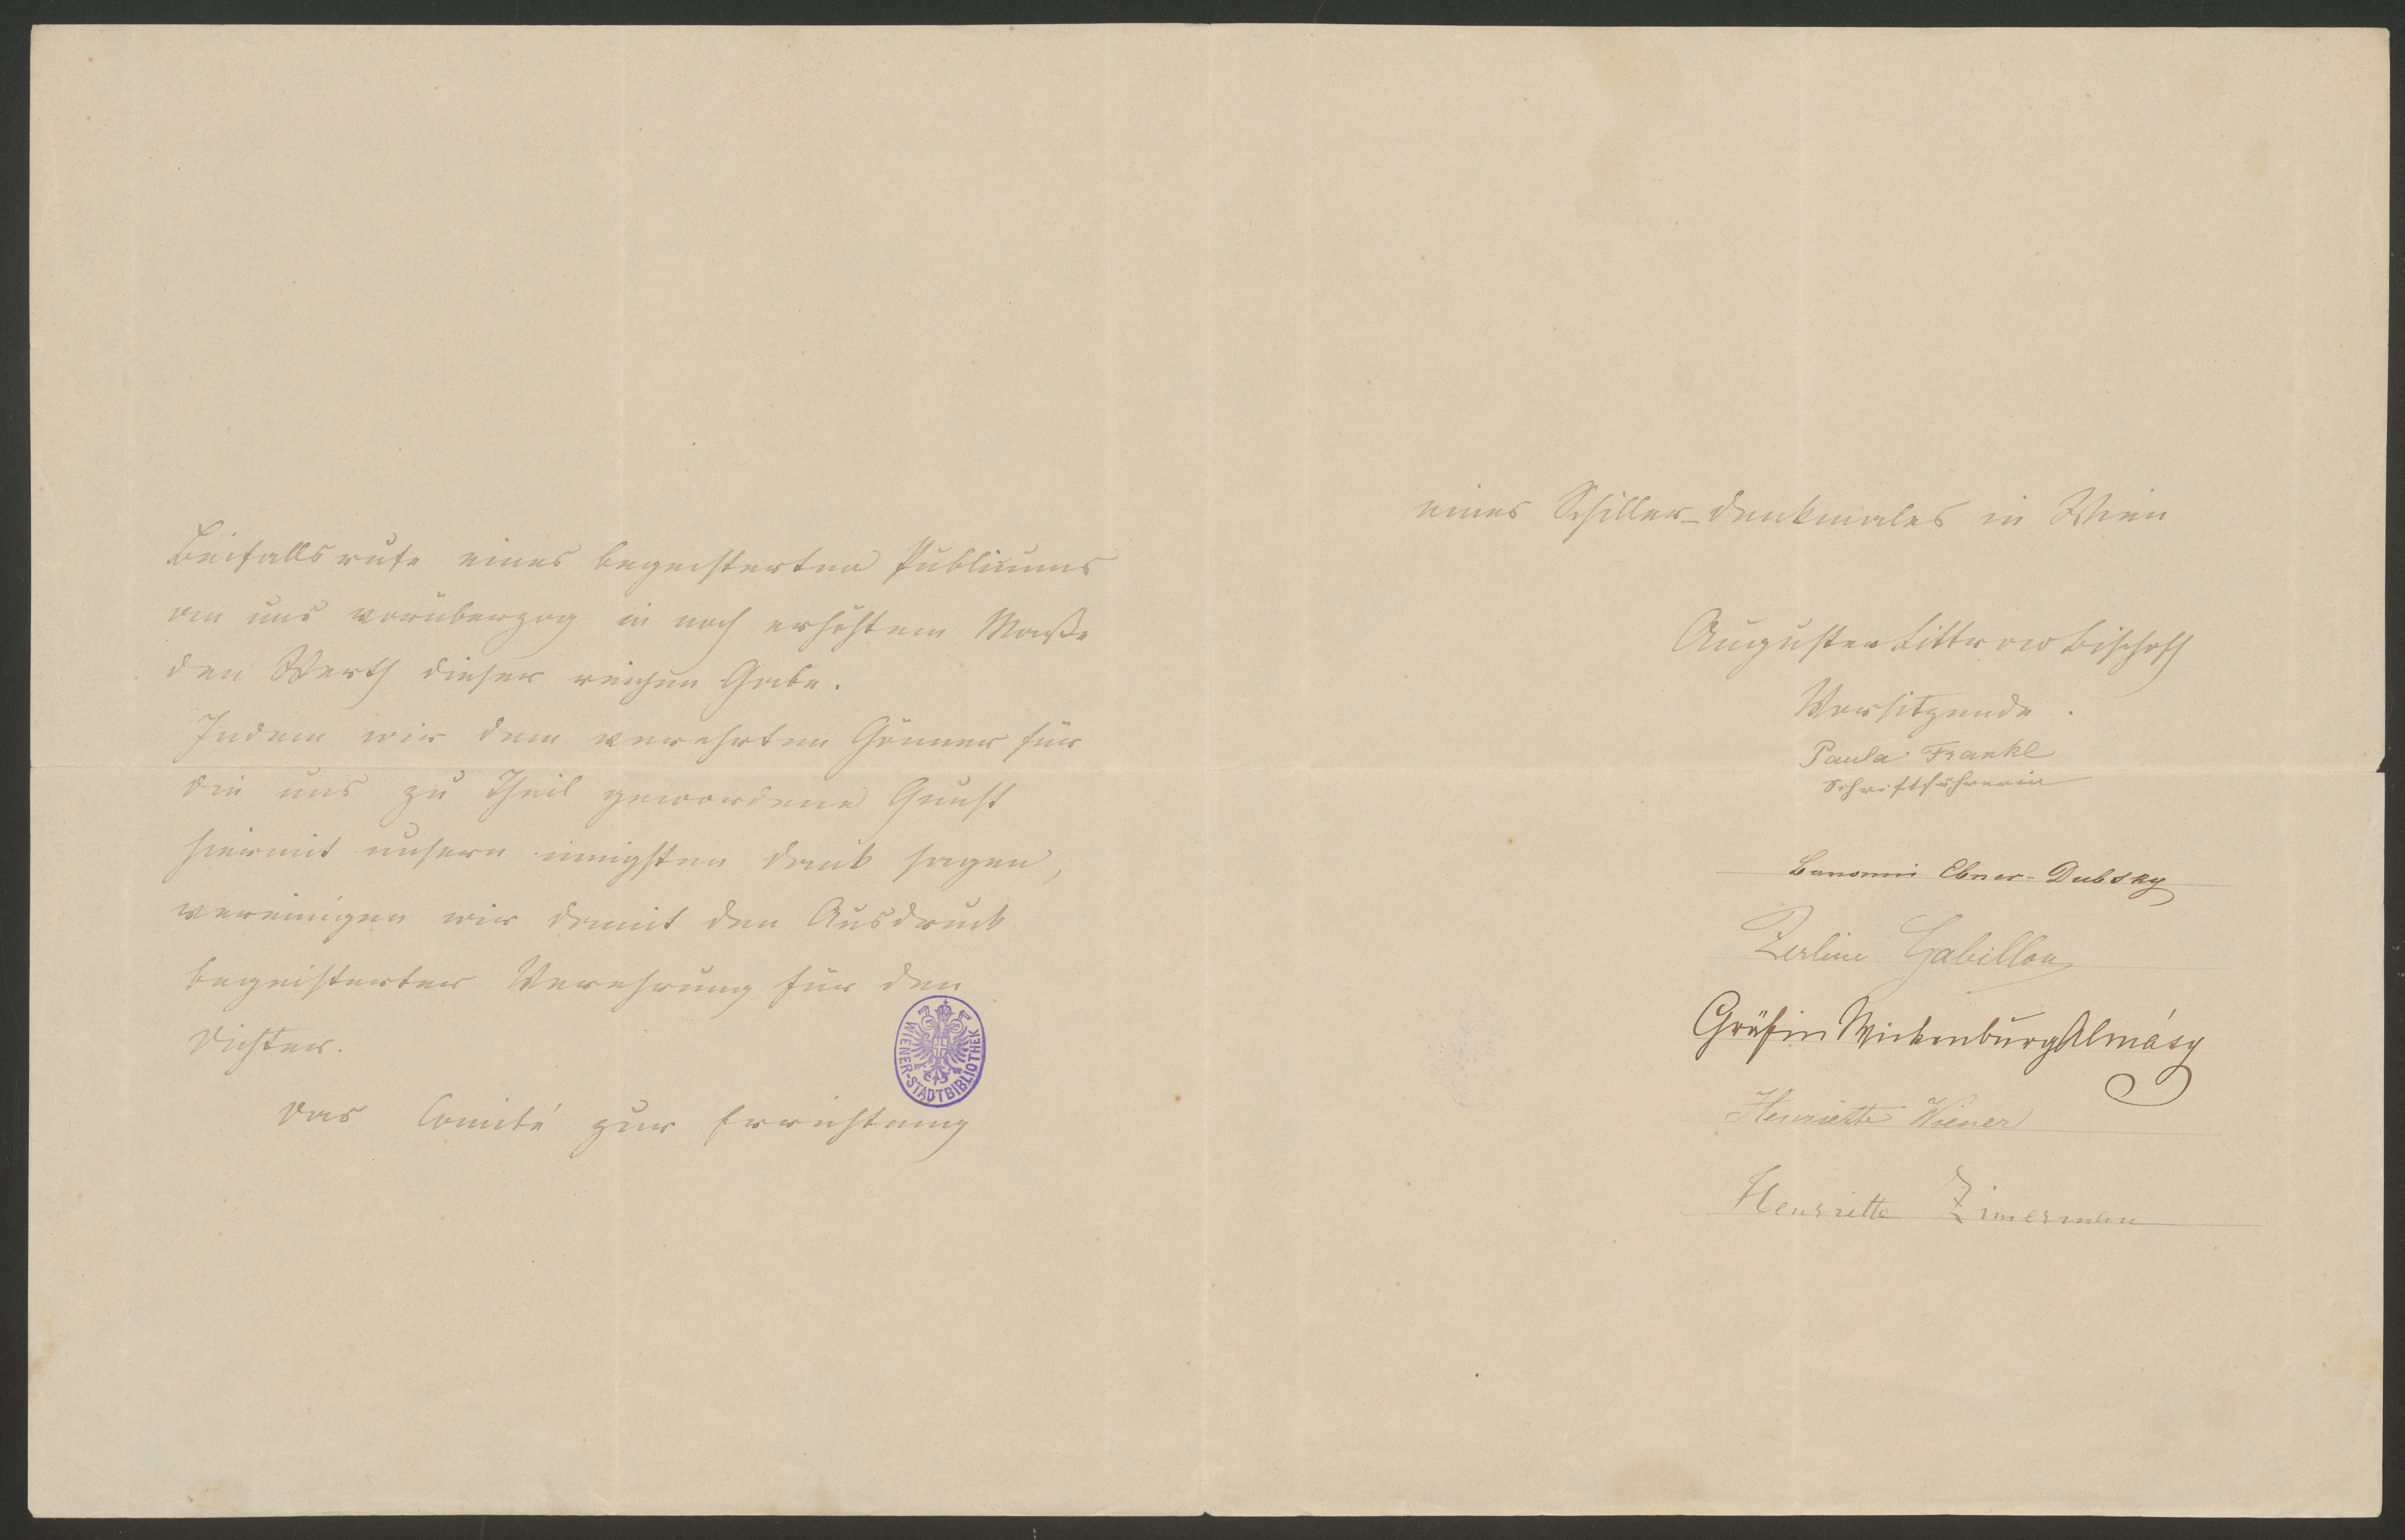 Beifallsrufe eines begeisterten Publicums
an uns vorüberzog in noch erhöhtem Maße
den Werth dieser reichen Gabe.
Indem wir dem verehrten Gönner für
die uns zu Theil gewordene Gunst
hiermit unsern innigsten Dank sagen,
vereinigen wir damit den Ausdruck
begeisterter Verehrung für den
Dichter.
Das Comité zur Errichtung
WIENER-STADTBIBLIOTHEK
eines Schiller-Denkmales in Wien
Auguste Littrow Bischoff
Vorsitzende.
Paula Frankl
Schriftführerin
Baronin Ebner-Dubsky
Zerline Gabillon
Gräfin Wickenburg Almásy
Henriette Wiener
Henriette Zimerman